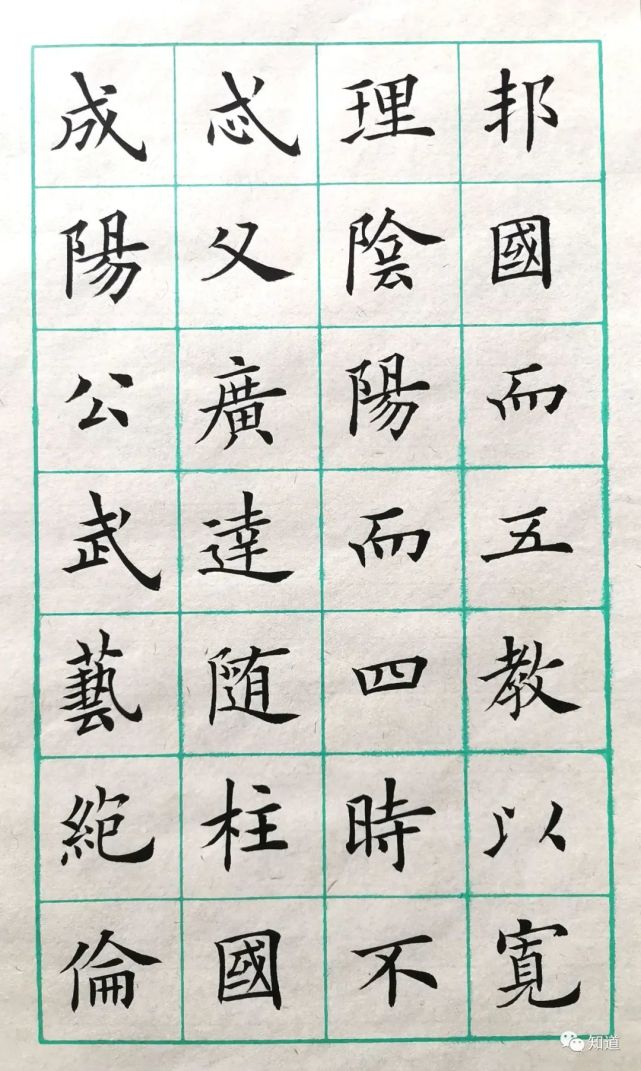 邦國而五教以寛
理陰陽而四時不
忒父廣達随柱國
成陽公武藝絕倫
知道